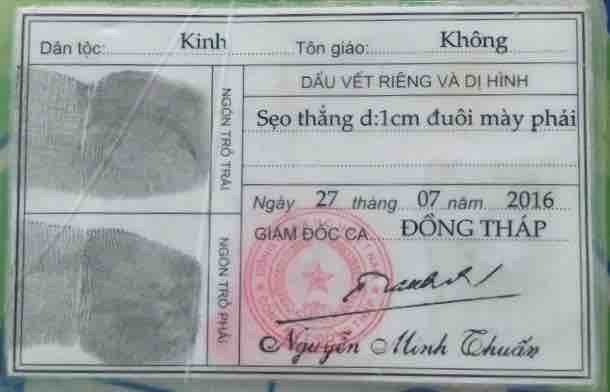 Dân tộc: Kinh Tôn giáo: Không
NGÓN TRỎ TRÁI
DẤU VẾT RIÊNG VÀ DỊ HÌNH
Sẹo thẳng d:1cm đuôi mày phải
Ngày 27 tháng 07 năm 2016
NGÓN TRỎ PHẢI
GIÁM ĐỐC CA ĐỒNG THÁP
Nguyễn Minh Thuấn